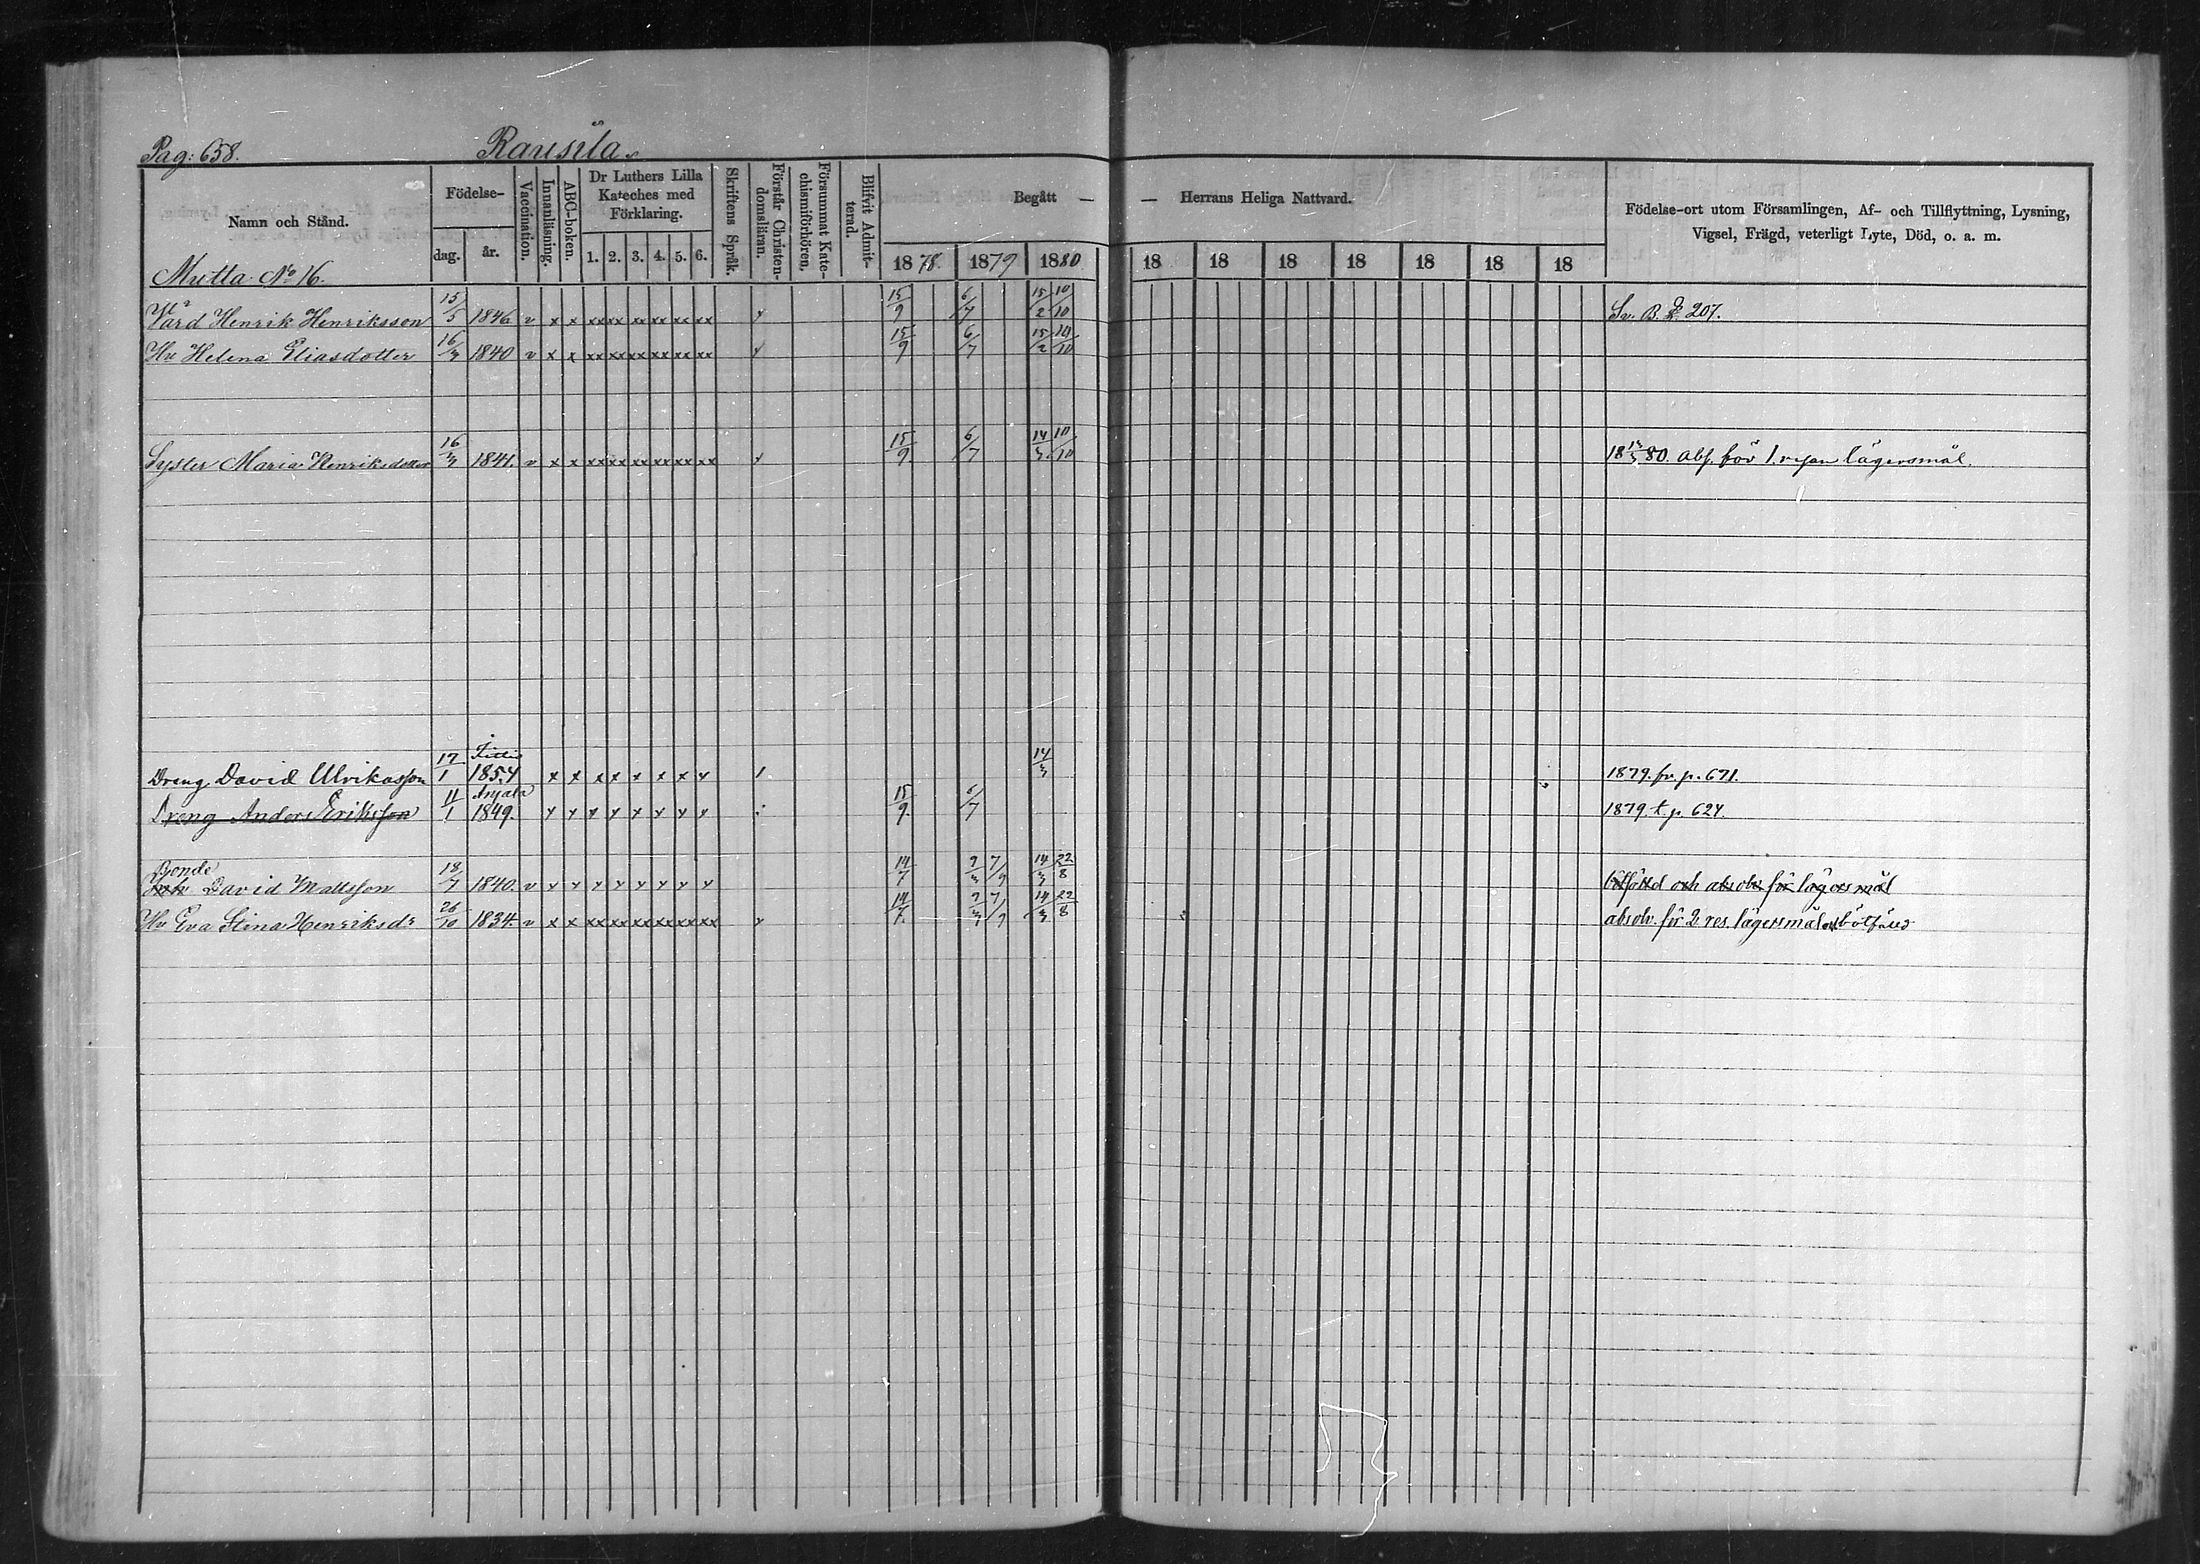 Pag: 658. Rausila.
Namn och Stånd. Födelse- dag. år. Vaccination. Innanläsning. ABC-boken. Dr Luthers Lilla Kateches med Förklaring. 1. 2. 3. 4. 5. 6. Skriftens Språk. Förstår Christendomsläran. Försummat Katechismiförhören, Blifvit Admitterad. Begått — — Herrans Heliga Nattvard. 1878. 1879 1880 18 18 18 18 18 18 18 Födelse-ort utom Församlingen, Af- och Tillflyttning, Lysning, Vigsel, Frägd, veterligt Lyte, Död, o. a. m.
Mutta No 16.
Vård Henrik Henriksson 15/5 1846 v x x xx xx xx xx xx xx x 15/9 6/7 15/2 10/10 Sv. B. 207.
Hu Helena Eliasdotter 16/3 1840 v x x xx xx xx xx xx xx x 15/9 6/7 15/2 10/10
Syster Maria Henriksdotter 16/3 1841. v x x xx xx xx xx xx xx x 15/9 6/7 14/3 10/10 1880. abs. för 1. resan lägersmål.
Dreng David Ulrikasson 17/1 1854 x x xx x x x x x 1 14/3 1879. fr. p. 671.
Dreng Anders Eriksson 11/1 Anjala 1849. x x x x x x x x : 15/9 6/7 1879 t p. 624.
Bonde
David Mattsson 18/7 1840. v x x x x x x x x 14/7 9/3 7/9 14/3 22/8 bötfälld och absolv för lägersmål
Hu Eva Stina Henriksdr 26/10 1834. v x x xx xx xx xx xx xx x 14/7 9/3 7/9 14/3 22/8 absolv. för 2 res. lägersmål bötfäld